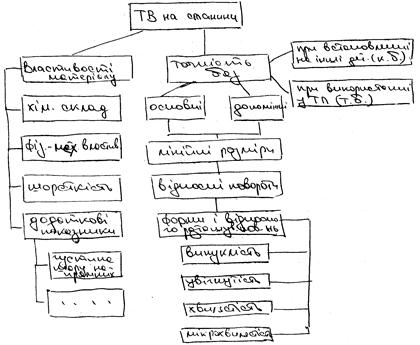 ТВ на станини
Властивості
матеріалу
хім. склад
фіз.-мех властив
шорсткість
додаткові
показники
густина
....
точність
баз
основні
допоміжні
лінійні розміри
відносні повороти
форми і відносно
го розташув. пов-нь
випуклість
увігнутість
хвилястість
мікрохвилястість
при встановленні
на інші дет. (к.б.)
при використанні
у ТП (т.б.)